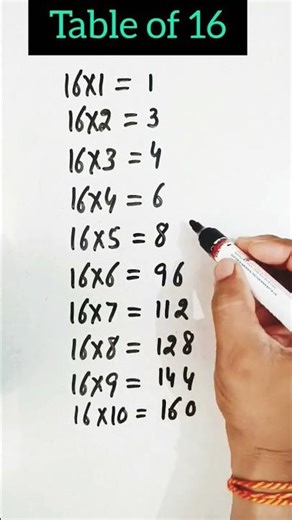 Table of 16
16X1 = 1
16X2 = 3
16X3 = 4
16X4 = 6
16X5 = 8
16X6 = 96
16X7 = 112
16X8 = 128
16X9 = 144
16X10 = 160